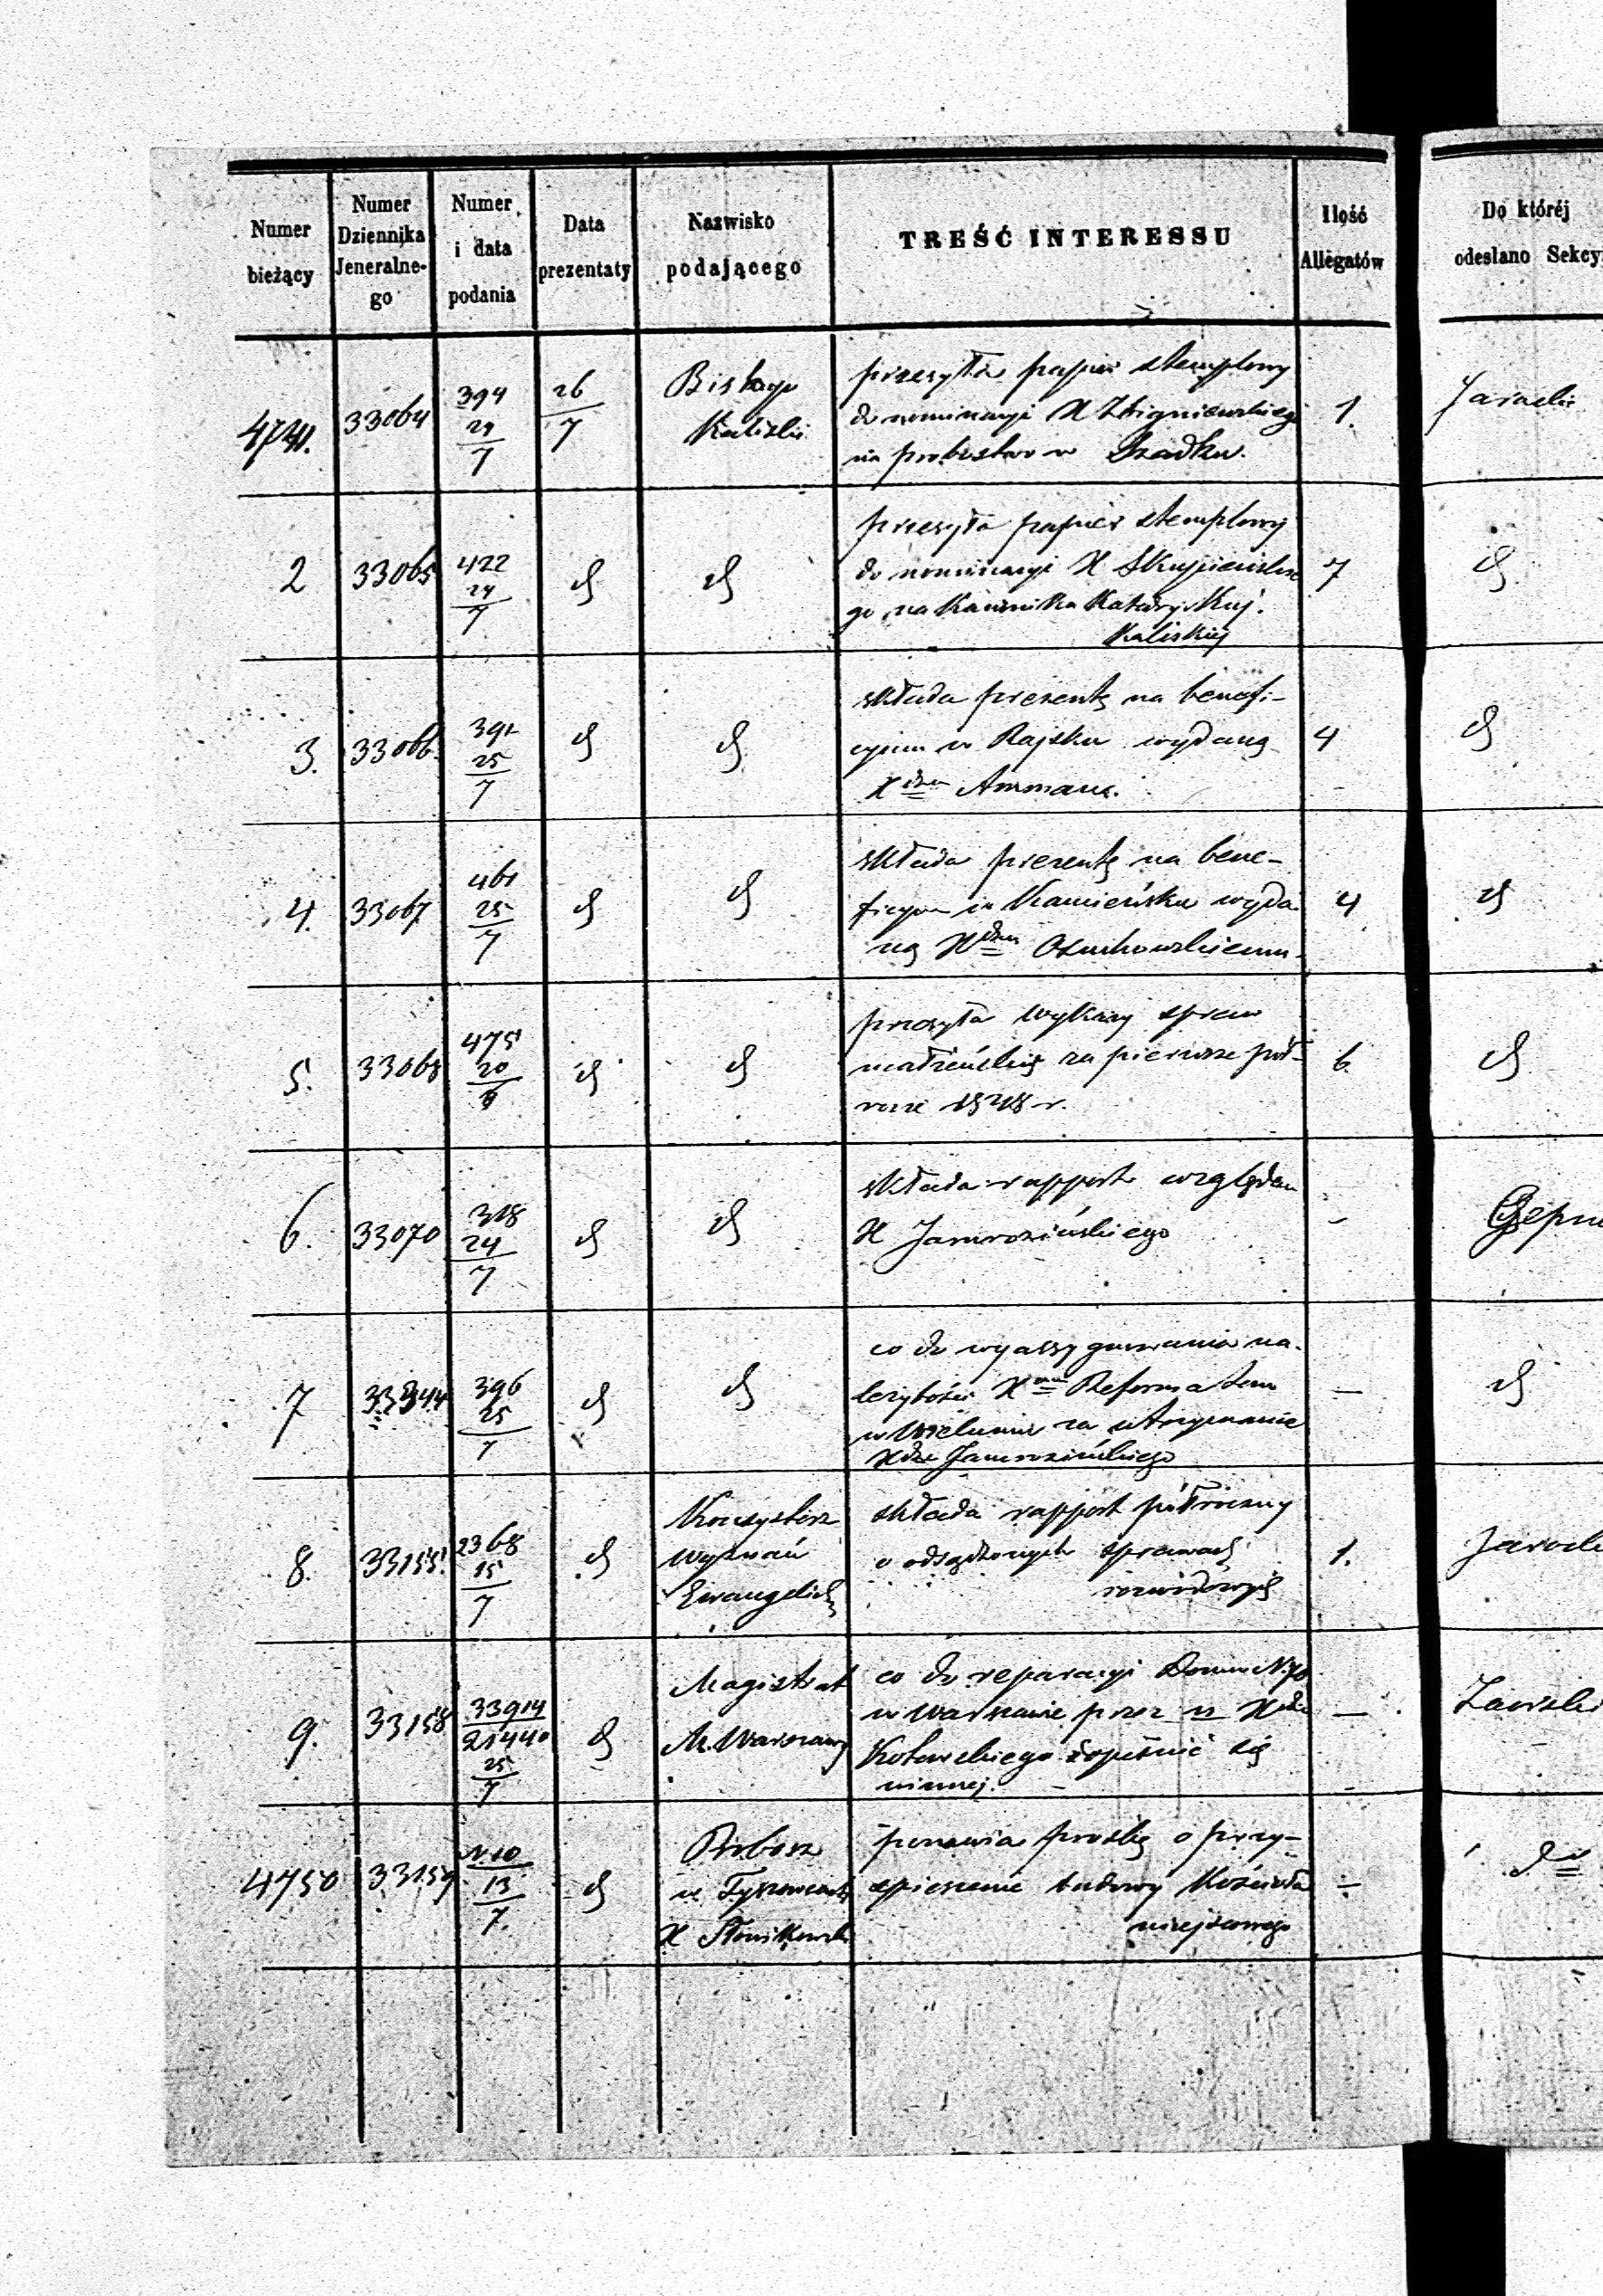 Numer bieżący
Numer Dziennika Jeneralne-go
Numer i data podania
Data prezentaty
Nazwisko podającego
TREŚĆ INTERESSU
Ilość Allegatów
Do któréj odesłano Sekcy
4741. 33064 394 24/7 26/7 Biskup Kaliski 1.
przesyła papier stemplowy
do nominacyi X Zbigniewskiego
na probostwo w Szadku.
2 33065 422 24/7 d d 7 d
przesyła papier stemplowy
do nominacyi X Skupieńskie
go na Kanonika Katedry Kuj.
Kaliskiej
3. 33066. 391 25/7 d d 4 d
składa prezentę na benefi-
cyum w Rajsku wydaną
X dzu Ammanu.
4. 33067 461 25/7 d d 4 d
składa prezentę na bene-
ficyum w Kamieńsku wyda-
ną X dzu Osuchowskiemu.
5. 33068 475 20/6 d d 6 d
przesyła wykazy spraw
małżeńskich za pierwsze pół-
rocze 1848 r.
6. 33070 318 24/7 d d -
składa rapport względem
X Jamrozińskiego
7 396 25/7 d d — d
co do wyassygnowania na-
leżytości X om Reformatom
w Wieluniu za utrzymanie
X dza Jamrozińskiego
8. 33155. 2368 15/7 d Konsystorz 1.
Wyznań
Ewangelick
składa rapport półroczny
o odsądzonych sprawach
rozwodowych
9. 33158 33914 21440 25/7 d Magistrat —
M. Warszawy
co do reparacyi Domu N. 70
w Warszawie przez X dza
Kotowskiego dopełnić się
winnej.
4750 33159 N. 10 13/7 d Proboszcz — do
w Tyszowcach
X Słonikowski
ponawia prośbę o przy-
spieszenie budowy Kościoła
miejscowego